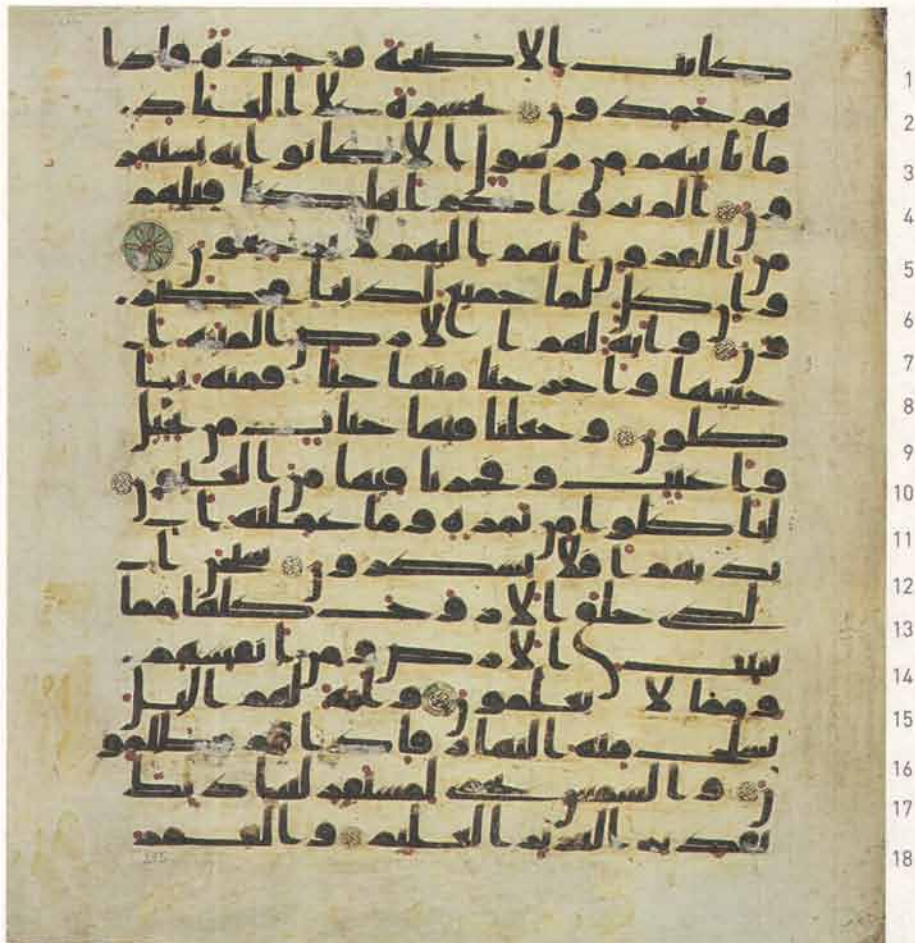 1 كانت الا صيحة وحدة فاذا
2 هم خمدون يحسرة على العباد
3 ما ياتيهم من رسول الا كانوا به يستهز
4 ون الم يروا كم اهلكنا قبلهم
5 من القرون انهم اليهم لا يرجعون
6 وان كل لما جميع لدينا محضر
7 ون واية لهم الارض الميتة ا
8 حيينها واخرجنا منها حبا فمنه يا
9 كلون وجعلنا فيها جنات من نخيل
10 واعنب وفجرنا فيها من العيون
11 لياكلوا من ثمره وما عملته ا
12 يديهم افلا يشكرون سبحن ا
13 لذي خلق الازوج كلها مما
14 تنبت الارض ومن انفسهم
15 ومما لا يعلمون واية لهم اليل
16 نسلخ منه النهار فاذا هم مظلمو
17 ن والشمس تجري لمستقر لها ذلك
18 تقدير العزيز العليم والقمر